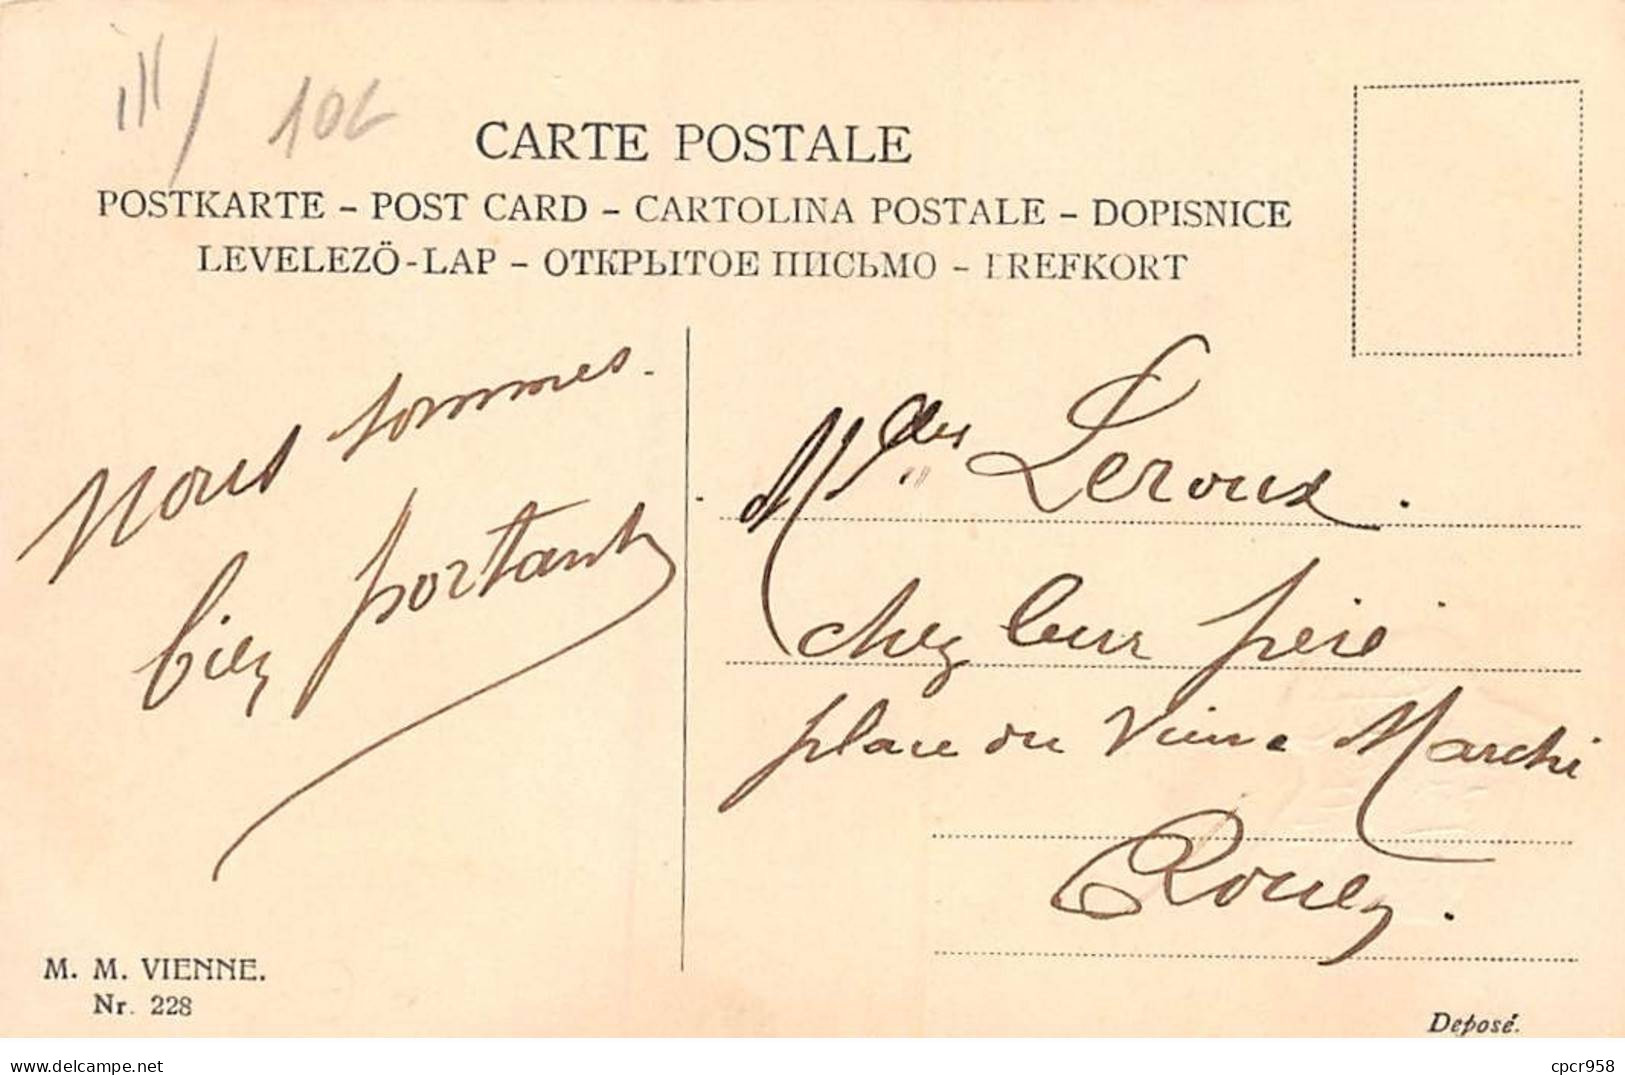 106
CARTE POSTALE
POSTKARTE – POST CARD – CARTOLINA POSTALE – DOPISNICE
LEVELEZÖ-LAP – ОТКРЫТОЕ ПИСЬМО – BREFKORT
Nous sommes.
bien portants
Mlles Leroux.
chez leur frère
place du Vieux Marché
Rouen.
M. M. VIENNE.
Nr. 228
Deposé.
delcampe.net
cpcr958